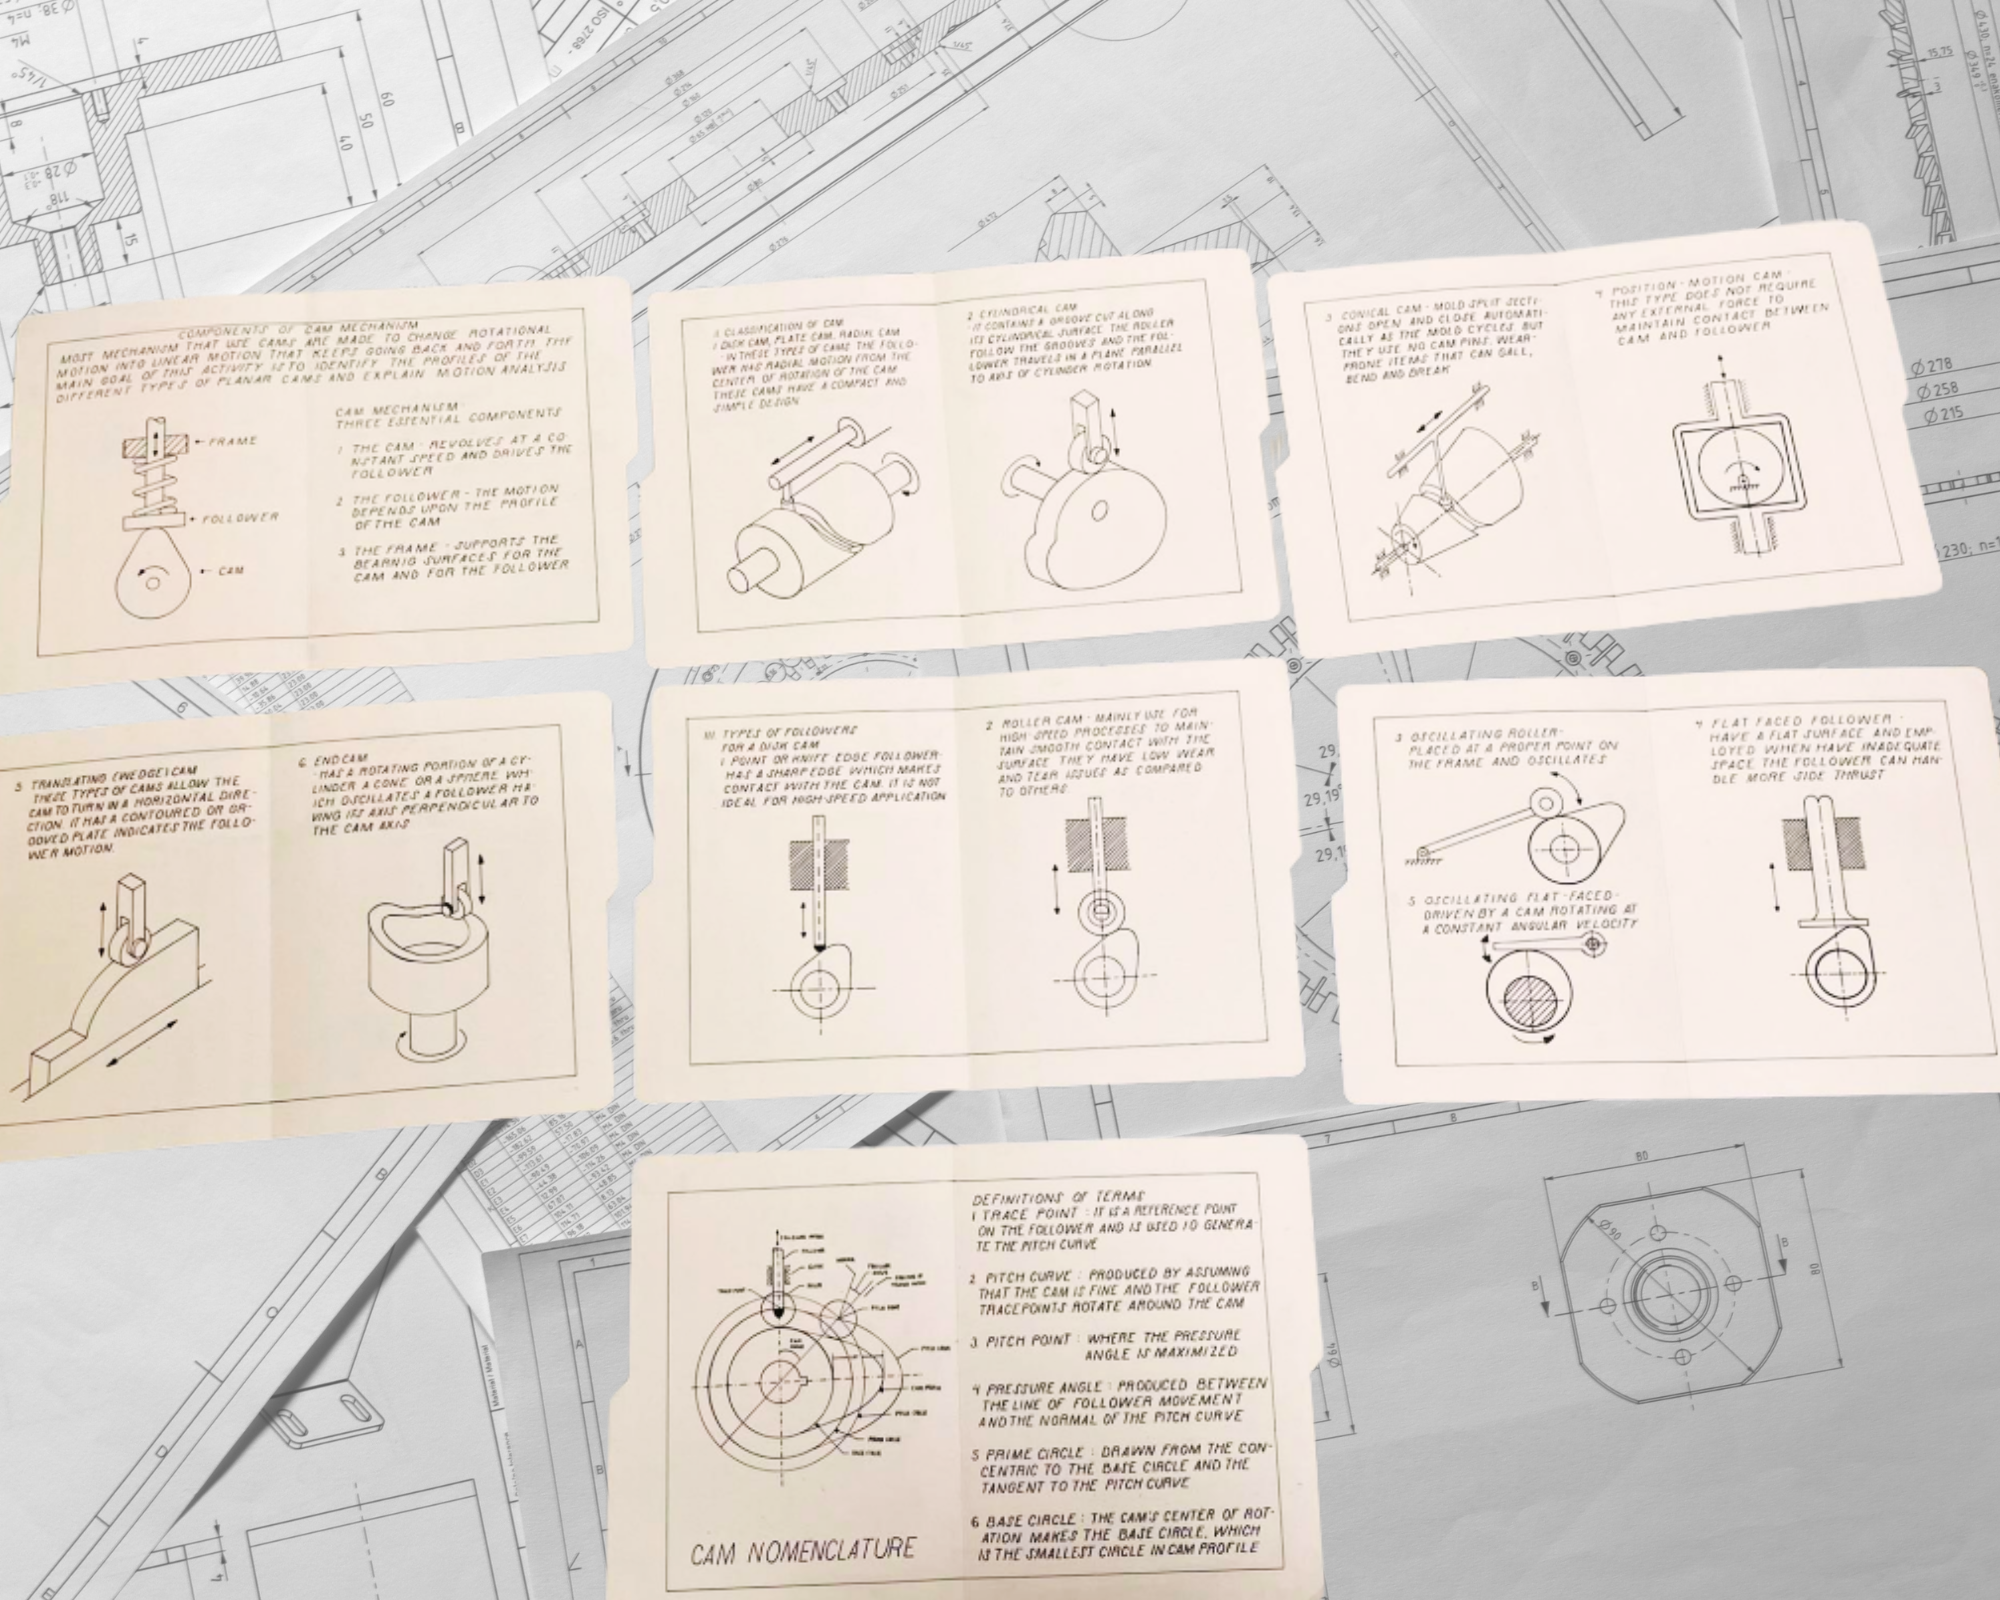 COMPONENTS OF CAM MECHANISM
MOST MECHANISM THAT USE CAMS ARE MADE TO CHANGE ROTATIONAL
MOTION INTO LINEAR MOTION THAT KEEPS GOING BACK AND FORTH THE
MAIN GOAL OF THIS ACTIVITY IS TO IDENTIFY THE PROFILES OF THE
DIFFERENT TYPES OF PLANAR CAMS AND EXPLAIN MOTION ANALYSIS
FRAME
FOLLOWER
CAM
CAM MECHANISM-
THREE ESSENTIAL COMPONENTS
1 THE CAM - REVOLVES AT A CO-
NSTANT SPEED AND DRIVES THE
FOLLOWER
2 THE FOLLOWER - THE MOTION
DEPENDS UPON THE PROFILE
OF THE CAM
3 THE FRAME - SUPPORTS THE
BEARNIG SURFACES FOR THE
CAM AND FOR THE FOLLOWER
II. CLASSIFICATION OF CAM
1 DISK CAM, PLATE CAM, RADIAL CAM
- IN THESE TYPES OF CAMS THE FOLLO-
WER HAS RADIAL MOTION FROM THE
CENTER OF ROTATION OF THE CAM
THESE CAMS HAVE A COMPACT AND
SIMPLE DESIGN
2 CYLINDRICAL CAM
- IT CONTAINS A GROOVE CUT ALONG
ITS CYLINDRICAL SURFACE THE ROLLER
FOLLOW THE GROOVES AND THE FOL-
LOWER TRAVELS IN A PLANE PARALLEL
TO AXIS OF CYLINDER ROTATION
3 CONICAL CAM - MOLD SPLIT SECTI-
ONS OPEN AND CLOSE AUTOMATI-
CALLY AS THE MOLD CYCLES BUT
THEY USE NO CAM PINS. WEAR-
PRONE ITEMS THAT CAN GALL,
BEND AND BREAK
4 POSITION - MOTION CAM -
THIS TYPE DOES NOT REQUIRE
ANY EXTERNAL FORCE TO
MAINTAIN CONTACT BETWEEN
CAM AND FOLLOWER
5 TRANSLATING (WEDGE) CAM
THESE TYPES OF CAMS ALLOW THE
CAM TO TURN IN A HORIZONTAL DIRE-
CTION. IT HAS A CONTOURED OR GR-
OOVED PLATE INDICATES THE FOLLO-
WER MOTION.
6 END CAM
- HAS A ROTATING PORTION OF A CY-
LINDER A CONE OR A SPHERE WH-
ICH OSCILLATES A FOLLOWER HA-
VING ITS AXIS PERPENDICULAR TO
THE CAM AXIS
III TYPES OF FOLLOWERS
FOR A DISK CAM
1 POINT OR KNIFE EDGE FOLLOWER-
HAS A SHARP EDGE WHICH MAKES
CONTACT WITH THE CAM. IT IS NOT
IDEAL FOR HIGH-SPEED APPLICATION
2 ROLLER CAM - MAINLY USE FOR
HIGH-SPEED PROCESSES TO MAIN-
TAIN SMOOTH CONTACT WITH THE
SURFACE THEY HAVE LOW WEAR
AND TEAR ISSUES AS COMPARED
TO OTHERS
3 OSCILLATING ROLLER-
PLACED AT A PROPER POINT ON
THE FRAME AND OSCILLATES
5 OSCILLATING FLAT-FACED-
DRIVEN BY A CAM ROTATING AT
A CONSTANT ANGULAR VELOCITY
4 FLAT FACED FOLLOWER -
HAVE A FLAT SURFACE AND EMP-
LOYED WHEN HAVE INADEQUATE
SPACE THE FOLLOWER CAN HAN-
DLE MORE SIDE THRUST
CAM NOMENCLATURE
DEFINITIONS OF TERMS
1 TRACE POINT : IT IS A REFERENCE POINT
ON THE FOLLOWER AND IS USED TO GENERA-
TE THE PITCH CURVE
2 PITCH CURVE : PRODUCED BY ASSUMING
THAT THE CAM IS FINE AND THE FOLLOWER
TRACEPOINTS ROTATE AROUND THE CAM
3 PITCH POINT : WHERE THE PRESSURE
ANGLE IS MAXIMIZED
4 PRESSURE ANGLE : PRODUCED BETWEEN
THE LINE OF FOLLOWER MOVEMENT
AND THE NORMAL OF THE PITCH CURVE
5 PRIME CIRCLE : DRAWN FROM THE CON-
CENTRIC TO THE BASE CIRCLE AND THE
TANGENT TO THE PITCH CURVE
6 BASE CIRCLE : THE CAM'S CENTER OF ROT-
ATION MAKES THE BASE CIRCLE, WHICH
IS THE SMALLEST CIRCLE IN CAM PROFILE
60
50
40
15
118°
Ø278
Ø258
Ø215
80
Ø90
80
B
B